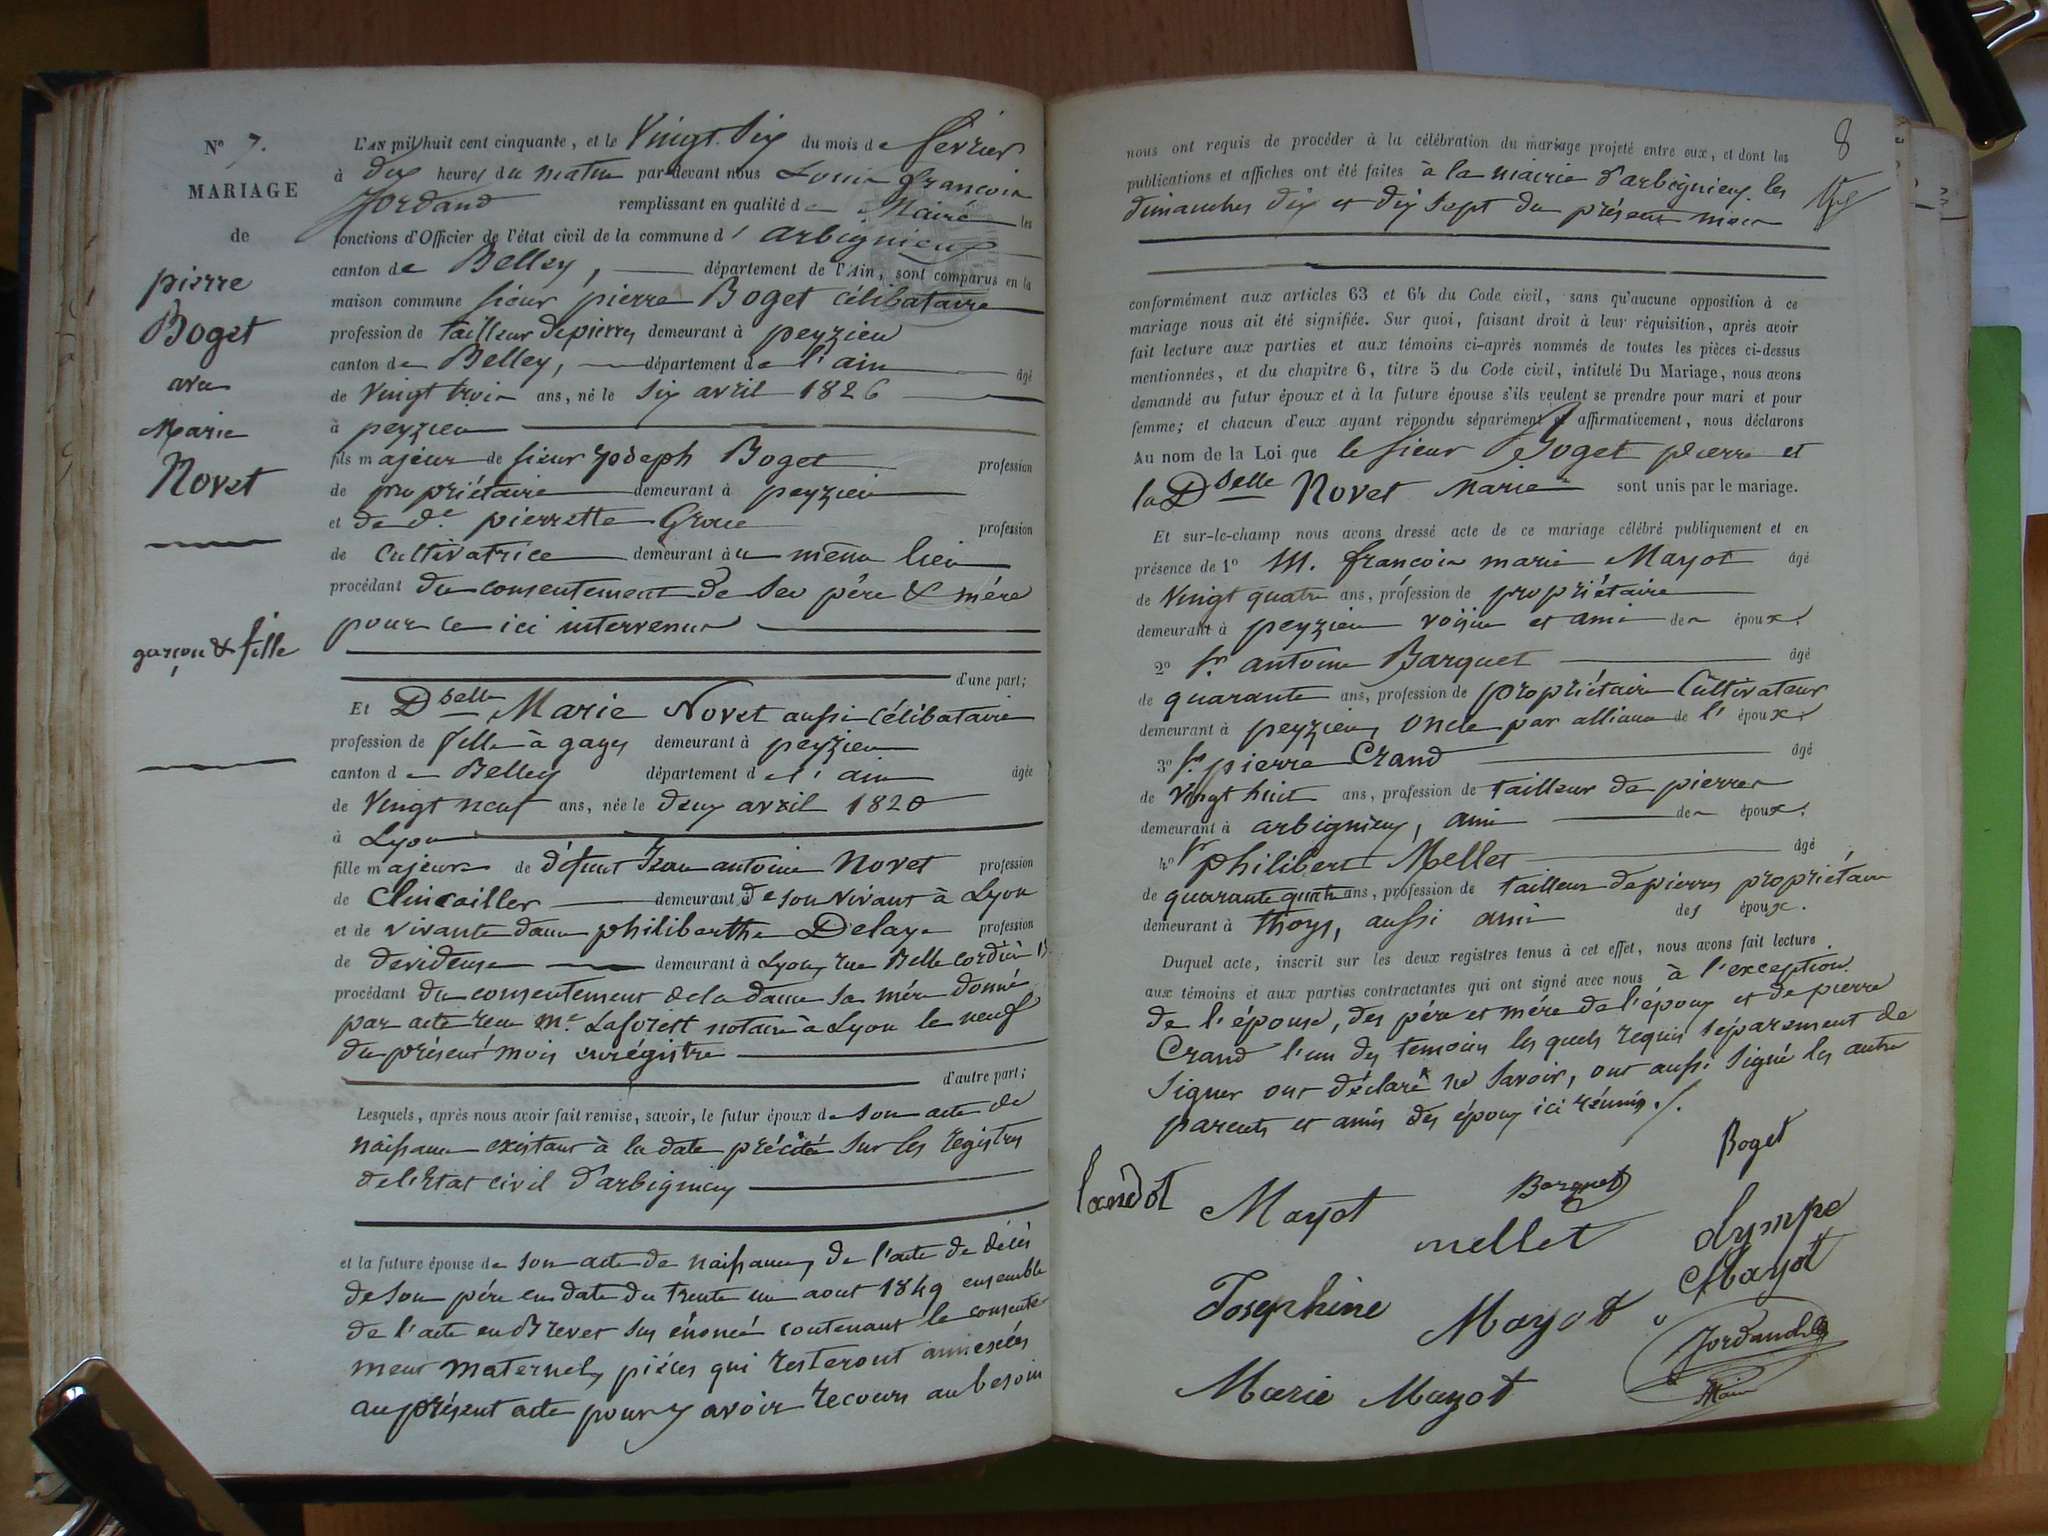 N° 7.
MARIAGE
de
pierre
Boget
avec
Marie
Novet
garçon & fille
L'AN mil huit cent cinquante, et le Vingt Six du mois de février
à dix heures du matin par-devant nous Louis françois
Jordand remplissant en qualité de Maire les
fonctions d'Officier de l'état civil de la commune d'arbignieux
canton de Belley, département de l'Ain, sont comparus en la
maison commune sieur pierre Boget célibataire
profession de tailleur de pierres demeurant à peyzieu
canton de Belley, département de l'ain âgé
de Vingt trois ans, né le six avril 1826
à peyzieu
fils majeur de sieur joseph Boget profession
de propriétaire demeurant à peyzieu
et de de. pierrette profession
de Cultivatrice demeurant au même lieu
procédant du consentement de ses père & mère
pour ce ici intervenus
d'une part;
Et Dselle Marie Novet aussi célibataire
profession de fille à gages demeurant à peyzieu
canton de Belley département de l'ain âgée
de Vingt neuf ans, née le deux avril 1820
à Lyon
fille majeure de défunt Jean antoine Novet profession
de Clincailler demeurant de son vivant à Lyon
et de vivante dame philiberthe Delaye profession
de devideuse demeurant à Lyon, rue Belle cordière
procédant du consentement de la dame sa mère donné
par acte reçu Me. Laforest notaire à Lyon le neuf
du présent mois enregistré
d'autre part;
Lesquels, après nous avoir fait remise, savoir, le futur époux de son acte de
naissance existant à la date précitée sur les registres
de l'état civil d'arbignieu
et la future épouse de son acte de naissance, de l'acte de décès
de son père en date du trente un aout 1849 ensemble
de l'acte en Brevet sus énoncé contenant le consente
ment maternel, pièces qui resteront annexées
au présent acte pour y avoir recours au besoin
8
nous ont requis de procéder à la célébration du mariage projeté entre eux, et dont les
publications et affiches ont été faites à la mairie d'arbignieu les
dimanches dix et dix sept du présent mois
conformément aux articles 63 et 64 du Code civil, sans qu'aucune opposition à ce
mariage nous ait été signifiée. Sur quoi, faisant droit à leur réquisition, après avoir
fait lecture aux parties et aux témoins ci-après nommés de toutes les pièces ci-dessus
mentionnées, et du chapitre 6, titre 5 du Code civil, intitulé Du Mariage, nous avons
demandé au futur époux et à la future épouse s'ils veulent se prendre pour mari et pour
femme; et chacun d'eux ayant répondu séparément et affirmativement, nous déclarons
Au nom de la Loi que le sieur Boget pierre et
la Dselle Novet Marie sont unis par le mariage.
Et sur-le-champ nous avons dressé acte de ce mariage célébré publiquement et en
présence de 1° M. françois marie Mayot âgé
de Vingt quatre ans, profession de propriétaire
demeurant à peyzieu voisin et ami de époux.
2° Sr antoine Barquet âgé
de quarante ans, profession de propriétaire Cultivateur
demeurant à peyzieu, oncle par alliance de l'époux.
3° Sr pierre Crand âgé
de vingt huit ans, profession de tailleur de pierres
demeurant à arbignieu, ami de époux.
4° Sr philibert Mellet âgé
de quarante quatre ans, profession de tailleur de pierres propriétaire
demeurant à thoys, aussi ami des époux.
Duquel acte, inscrit sur les deux registres tenus à cet effet, nous avons fait lecture
aux témoins et aux parties contractantes qui ont signé avec nous à l'exception
de l'épouse, des père et mère de l'époux et de pierre
Crand l'un des temoins les quels requis séparément de
signer ont déclaré ne savoir, ont aussi signé les autre
parents et amis des époux ici réunis./.
Boget
Landot Mayot Barquet
mellet Lympe
Mayot
Josephine Mayot
Jordand
Marie Mayot Maire